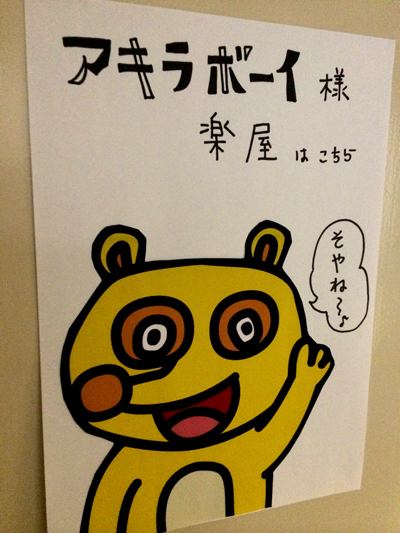 アキラボーイ様
楽屋はこちら
そやね〜♪